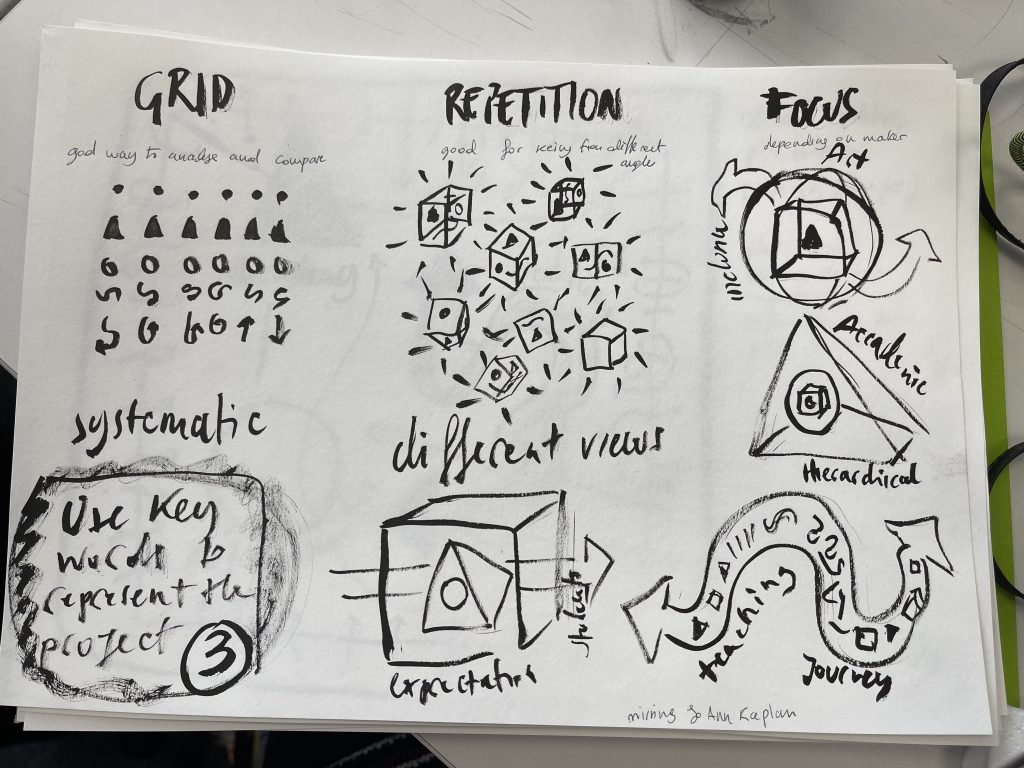 GRID
good way to analyse and compare
systematic
Use Key
words to
represent the
project
3
REPETITION
good for seeing from different
angle
different views
expectation
students
FOCUS
depending on maker
Art
Accademic
Hierarchical
teaching
Journey
Ann Kaplan